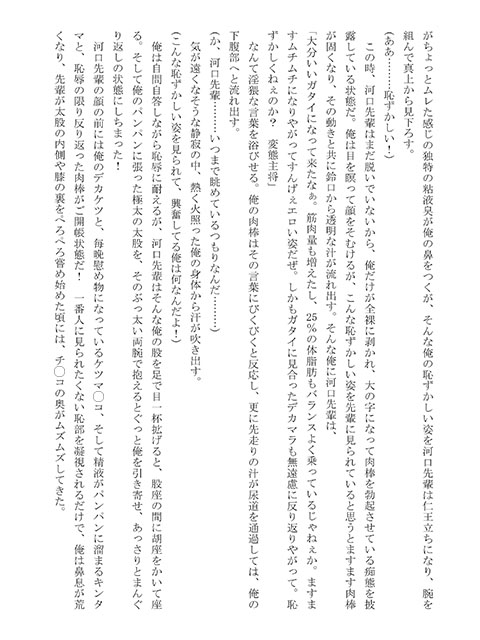 がちょっとムレた感じの独特の粘液臭が俺の鼻をつくが、そんな俺の恥ずかしい姿を河口先輩は仁王立ちになり、腕を
組んで真上から見下ろす。
(ああ………恥ずかしい！)
この時、河口先輩はまだ脱いでいないから、俺だけが全裸に剥かれ、大の字になって肉棒を勃起させている痴態を披
露している状態だ。俺は目を瞑って顔をそむけるが、こんな恥ずかしい姿を先輩に見られていると思うとますます肉棒
が固くなり、その動きと共に鈴口から透明な汁が流れ出す。そんな俺に河口先輩は、
「大分いいガタイになって来たなぁ。筋肉量も増えたし、25％の体脂肪もバランスよく乗っているじゃねぇか。ますま
すムチムチになりやがってすんげぇエロい姿だぜ。しかもガタイに見合ったデカマラも無遠慮に反り返りやがって。恥
ずかしくねぇのか？　変態主将」
なんて淫猥な言葉を浴びせる。俺の肉棒はその言葉にびくびくと反応し、更に先走りの汁が尿道を通過しては、俺の
下腹部へと流れ出す。
(か、河口先輩………いつまで眺めているつもりなんだ………)
気が遠くなそうな静寂の中、熱く火照った俺の身体から汗が吹き出す。
(こんな恥ずかしい姿を見られて、興奮してる俺は何なんだよ！)
俺は自問自答しながら恥辱に耐えるが、河口先輩はそんな俺の股を足で目一杯拡げると、股座の間に胡座をかいて座
る。そして俺のパンパンに張った極太の太股を、そのぶっ太い両腕で抱えるとぐっと俺を引き寄せ、あっさりとまんぐ
り返しの状態にしちまった！
河口先輩の顔の前には俺のデカケツと、毎晩慰め物になっているケツマ◯コ、そして精液がパンパンに溜まるキンタ
マと、恥辱の限り反り返った肉棒がご開帳状態だ！　一番人に見られたくない恥部を凝視されるだけで、俺は鼻息が荒
くなり、先輩が太股の内側や膝の裏をべろべろ嘗め始めた頃には、チ◯コの奥がムズムズしてきた。